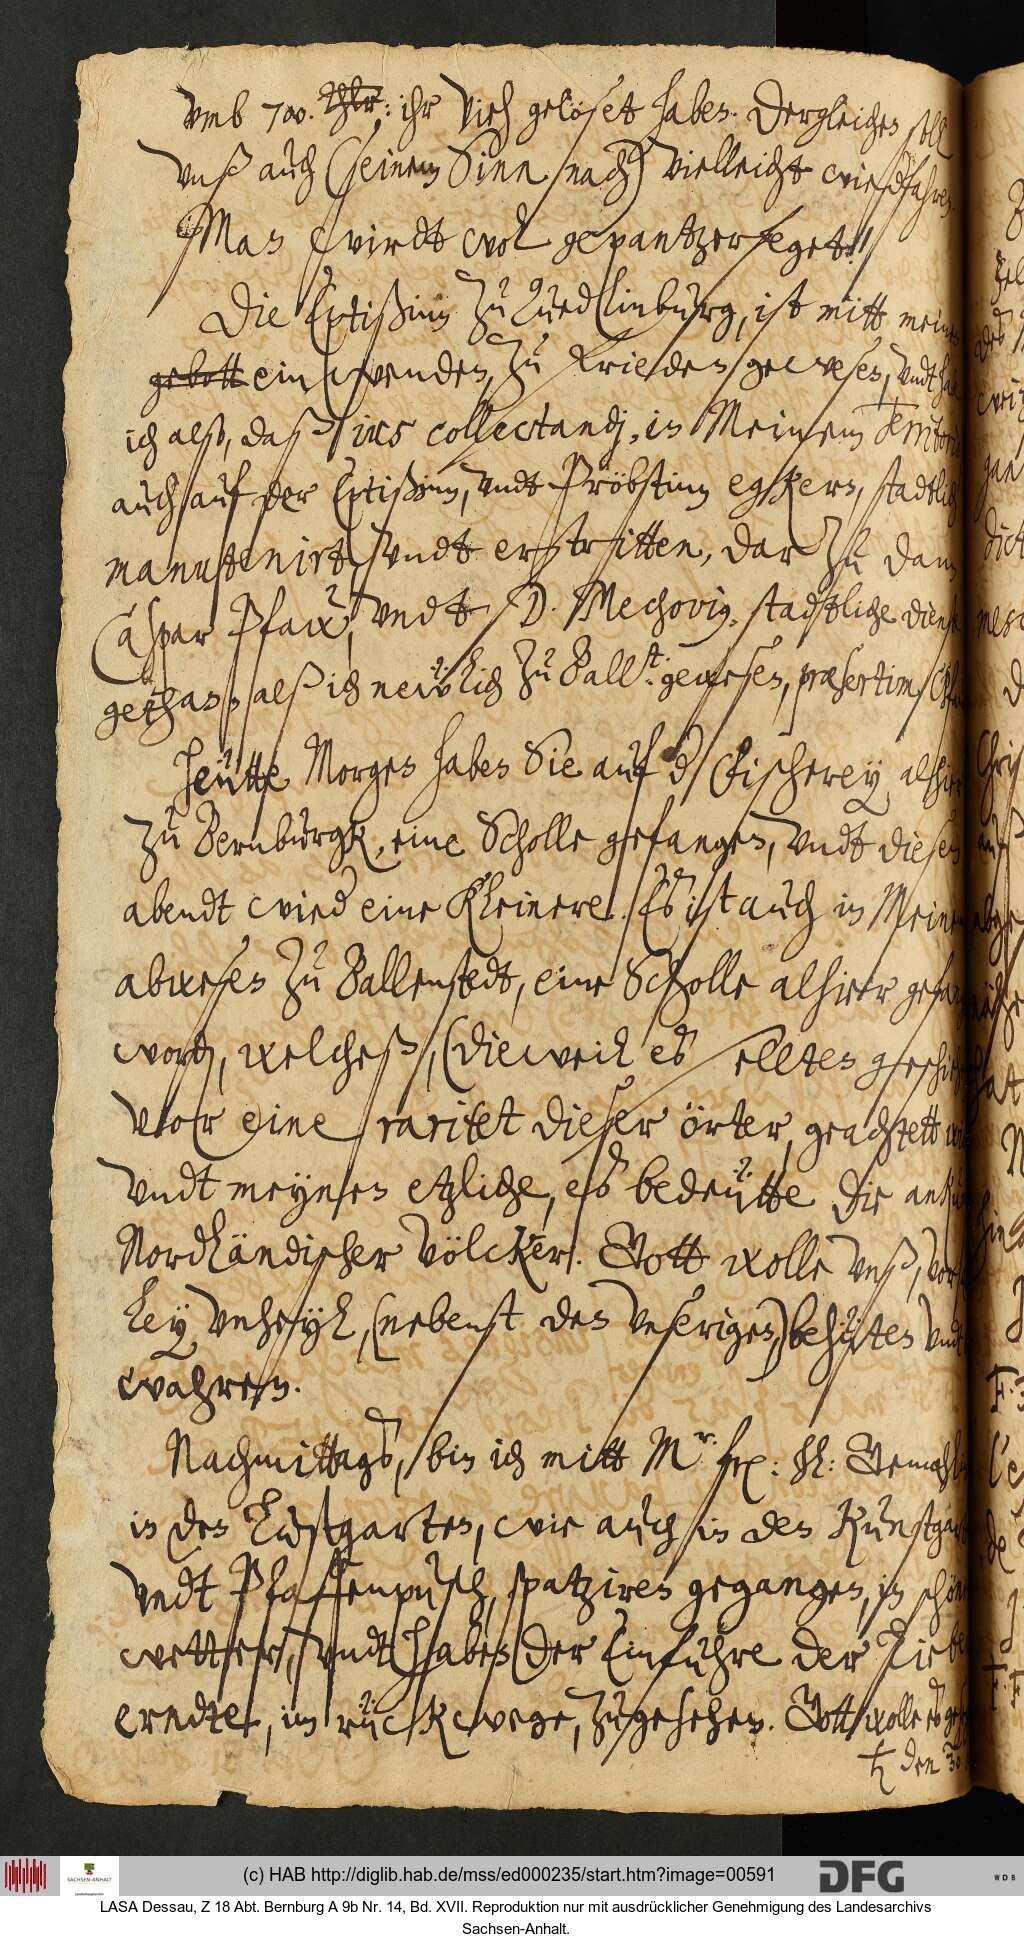 vmb 700. Thlr: ihr Vieh gelöset haben. Dergleichen soll
vnß auch (seinem Sinn nach) vielleicht wiederfahren
Man wirdt wol gepantzerfeget!!
Die Eptißinn zu Quedlinburg, ist mitt meinem
gebott einwenden, zu frieden gewesen, vndt habe
ich also, daß ius collectandj, in Meinem Territorio
auch auf der Eptißinn, vndt Pröbstinn egkern, stadtlich
manutenirt, vndt erstritten, dar zu dann
Caspar Pfaw, vndt D. Mechovius, stadtliche dienste
gethan, alß ich neẅlich zu Ballst: gewesen, præsertim
Heütte Morgen haben Sie auf der Fischerey alhier
zu Bernburgk, eine Scholle gefangen, vndt diesen
abendt wieder eine Kleinere. Es ist auch in Meinem
abwesen zu Ballenstedt, eine Scholle alhier gefangen
worden, welcheß, (dieweil es sellten geschicht
vor eine raritet dieser örter, geachtett
vndt meynen etzliche, es bedeütte die
Nordländischer völcker. Gott wolle vnß, vor
ley vnheyl, (nebenst den vnserigen,) behüten vndt
wahren.
Nachmittags, bin ich mitt Mr. frl: h: Gemahlin
in den Lustgarten, wie auch in den Kunstgarten
vndt Pfaffenpusch, spatziren gegangen, in schönem
wetter, vndt haben der Einfuhre der lieben
erndte, im rückwege, zugesehen. Gott wolle es
♄ den 30
(c) HAB http://diglib.hab.de/mss/ed000235/start.htm?image=00591
SACHSEN-ANHALT
DFG
WDB
LASA Dessau, Z 18 Abt. Bernburg A 9b Nr. 14, Bd. XVII. Reproduktion nur mit ausdrücklicher Genehmigung des Landesarchivs
Sachsen-Anhalt.